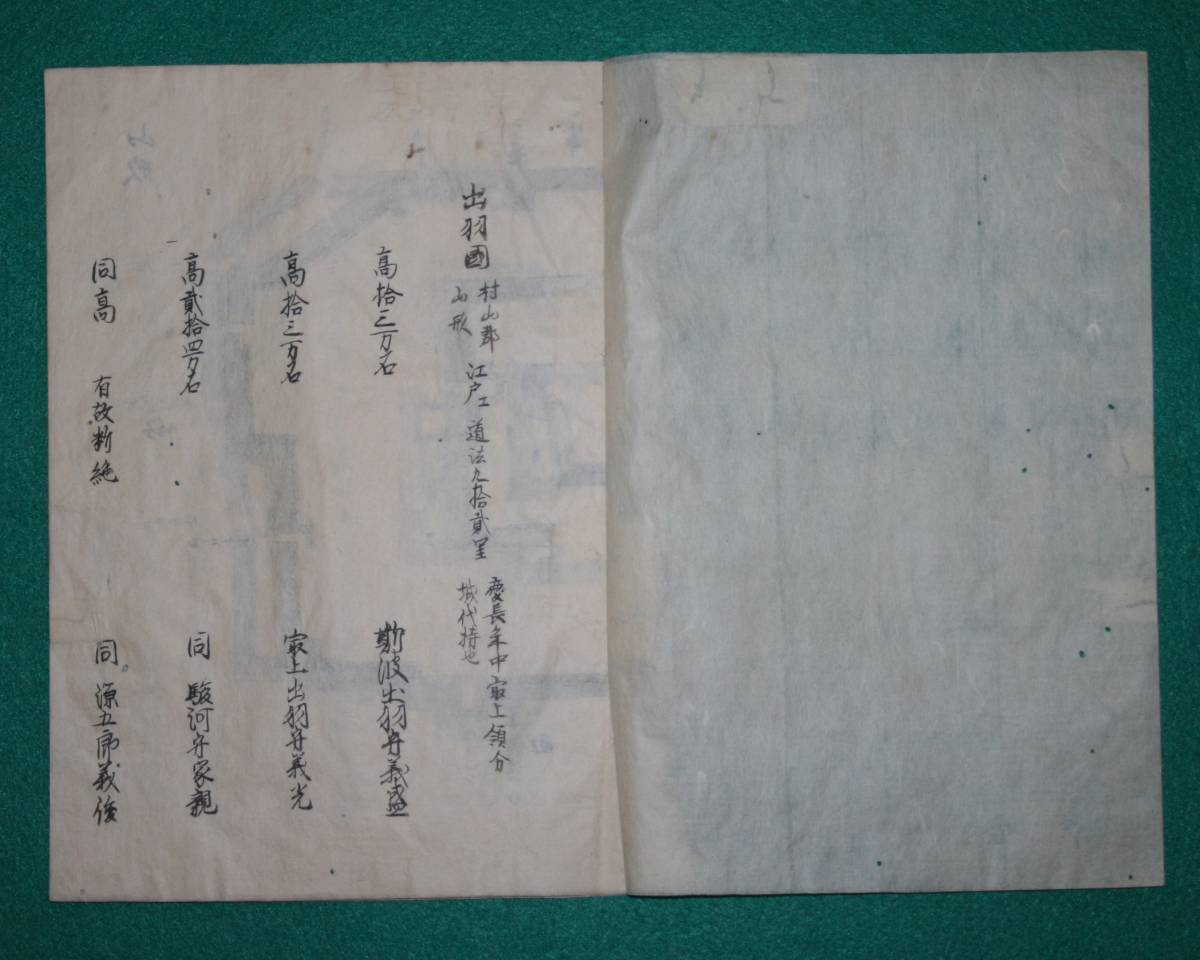 出羽國 村山郡 山形 江戸エ 道法九拾貳里 慶長年中最上領分 城代持也
高拾三万石 斯波出羽守義盛
高拾三万石 最上出羽守義光
高貳拾四万石 同 駿河守家親
同高 有故断絶 同 源五郎義俊
山形